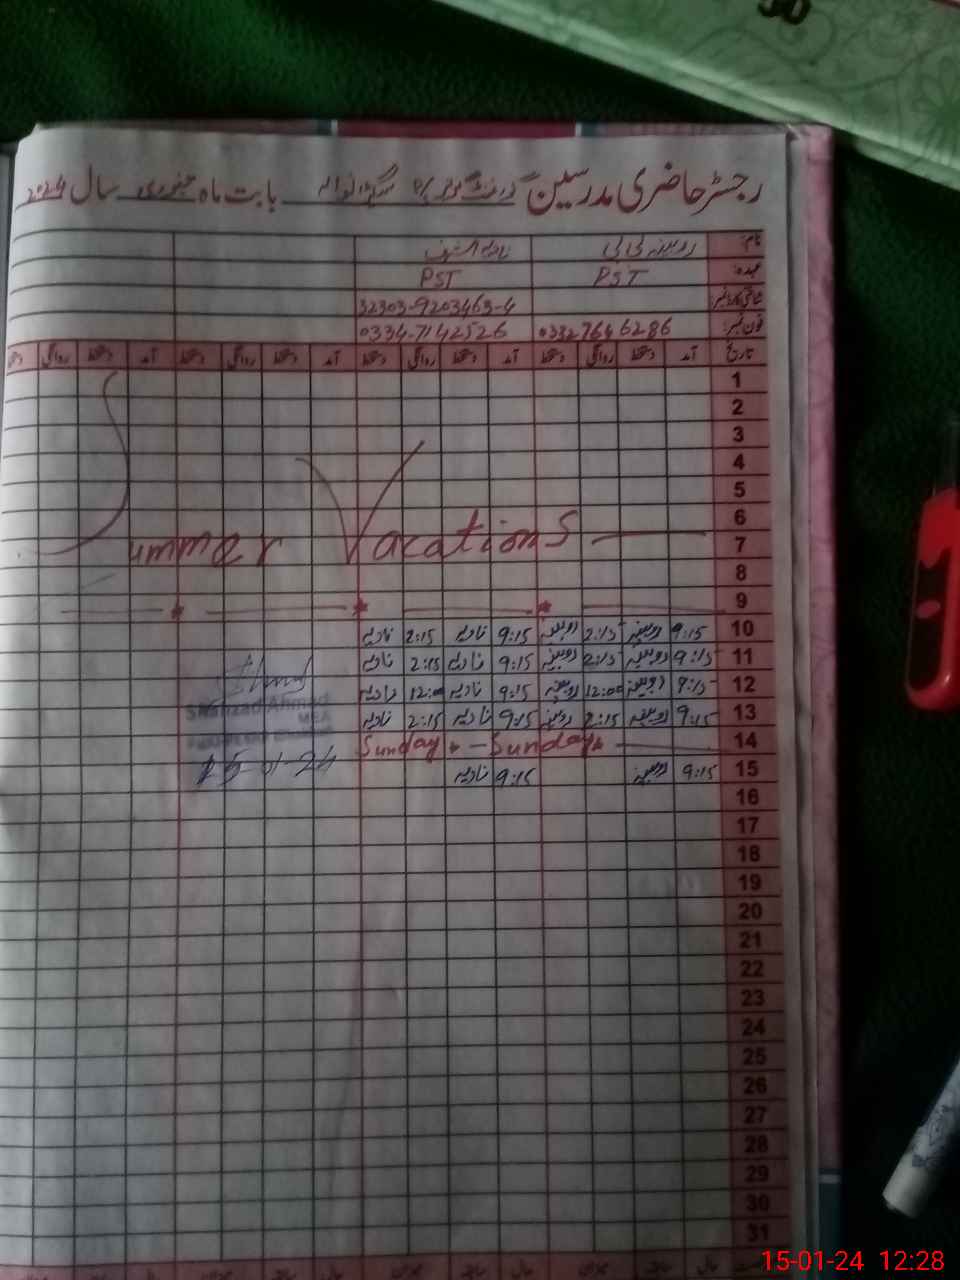 رجسٹر حاضری مدرسین گورنمنٹ بابت ماہ جنوری سال 2024
نام: روبینہ بی بی نادیہ اشرف
عہدہ: PST PST
شناختی کارڈ نمبر: 32303-9203463-4
فون نمبر: 0332 7646286 0334-7142526
تاریخ آمد دستخط روانگی دستخط آمد دستخط روانگی دستخط آمد دستخط روانگی دستخط آمد دستخط روانگی دستخط
1
2
3
4
5
6
7 Summer Vacations
8
9
10 9:15 روبینہ 2:15 روبینہ 9:15 نادیہ 2:15 نادیہ
11 9:15 روبینہ 2:15 روبینہ 9:15 نادیہ 2:15 نادیہ
12 9:15 روبینہ 12:00 روبینہ 9:15 نادیہ 12:00 نادیہ
13 9:15 روبینہ 2:15 روبینہ 9:15 نادیہ 2:15 نادیہ
Shahzad Ahmed
MEA
14 Sunday - Sunday
15 9:15 روبینہ 9:15 نادیہ
15-01-24
16
17
18
19
20
21
22
23
24
25
26
27
28
29
30
31
15-01-24 12:28